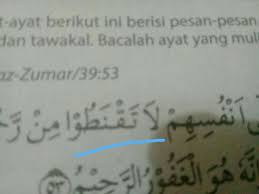 t-ayat berikut ini berisi pesan-pesan
dan tawakal. Bacalah ayat yang mul
az-Zumar/39:53
اَنْفُسِهِمْ لَا تَقْنَطُوْا مِنْ رَّحْ
نَّهٗ هُوَ الْغَفُوْرُ الرَّحِيْمُ ٥٣